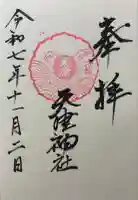 奉拝
天津神社
令和七年十一月二日